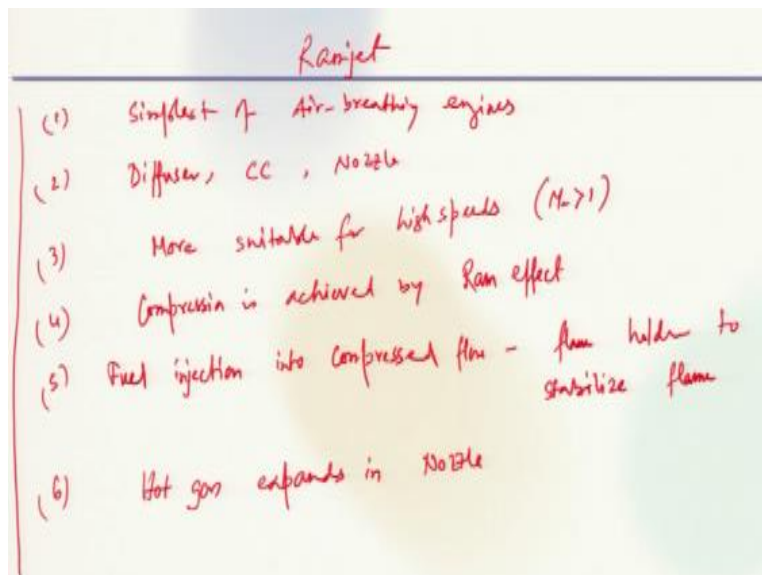 Ramjet
(1) Simplest of Air-breathing engines
(2) Diffuser, CC, Nozzle
(3) More suitable for high speeds (M∞>1)
(4) Compression is achieved by Ram effect
(5) Fuel injection into compressed flow - flame holder to
stabilize flame
(6) Hot gas expands in Nozzle